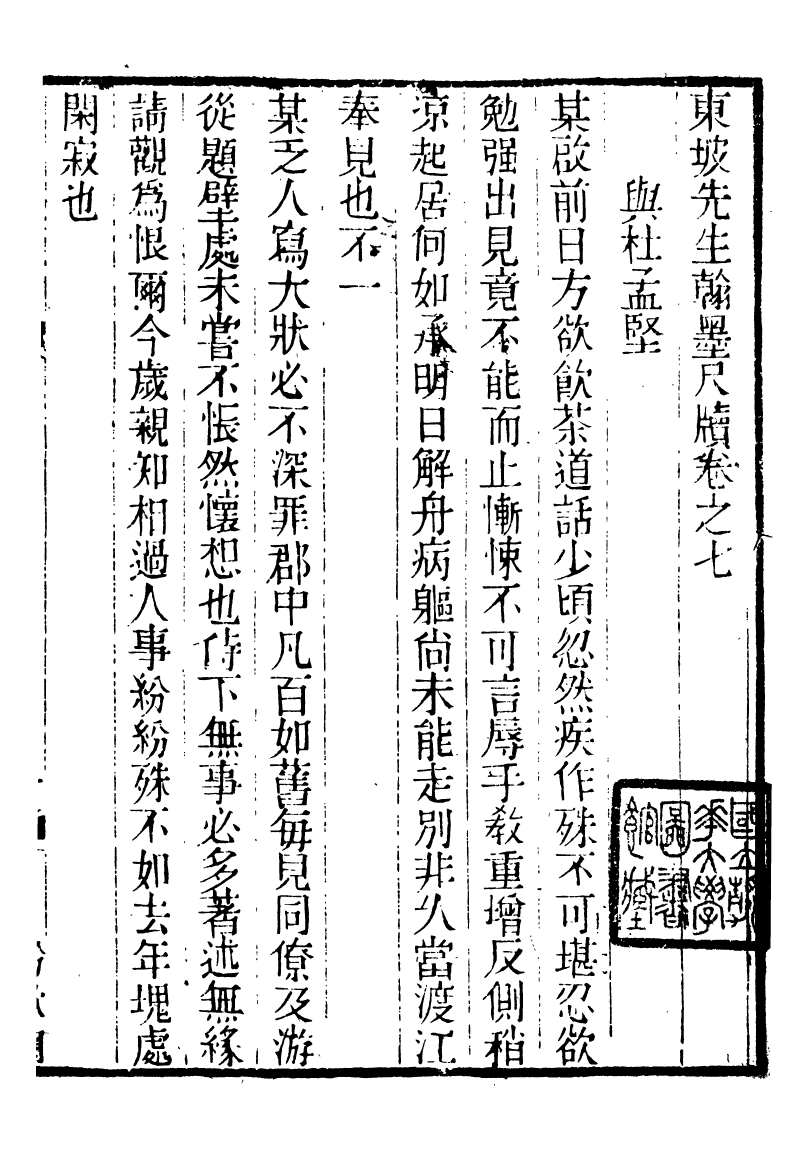 東坡先生翰墨尺牘卷之七
與杜孟堅
某啟前日方欲飲茶道話少頃忽然疾作殊不可堪忍欲
勉强出見竟不能而止慚悚不可言辱手教重增反側稍
涼起居何如承明日解舟病軀尚未能走別非久當渡江
奉見也不一
某乏人寫大狀必不深罪郡中凡百如舊每見同僚及游
從題壁處未嘗不悵然懷想也侍下無事必多著述無緣
請觀爲恨爾今歲親知相過人事紛紛殊不如去年塊處
閑寂也
國立
華大學
圖書
館藏